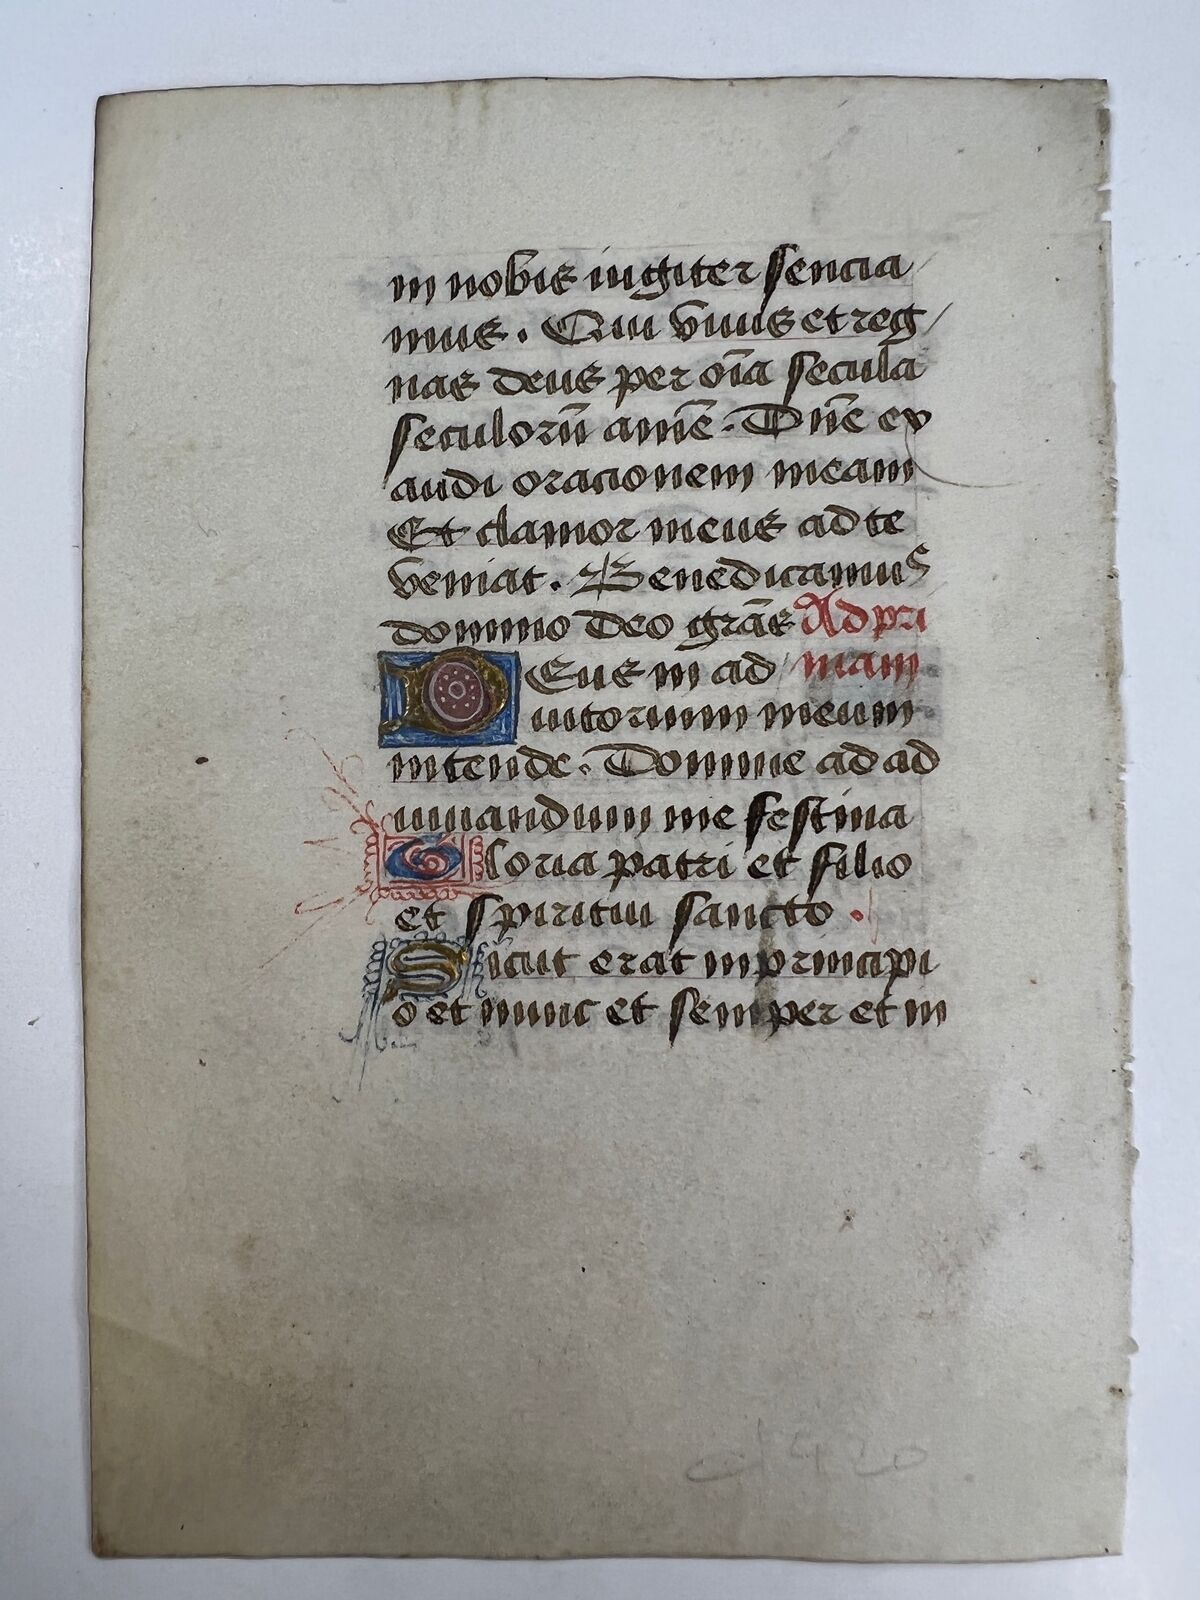 in nobis iugiter sencia
mus. Qui vivis et reg
nas deus per oīa secula
seculorū amē. Dn̄e ex
audi oracionem meam
Et clamor meus ad te
veniat. Benedicamus
domino Deo gr̄as Ad pri
Deus in ad mam
iutorium meum
intende. Domine ad ad
iuuandum me festina
Gloria patri et filio
et spiritui sancto.
Sicut erat in principi
o et nunc et semper et in